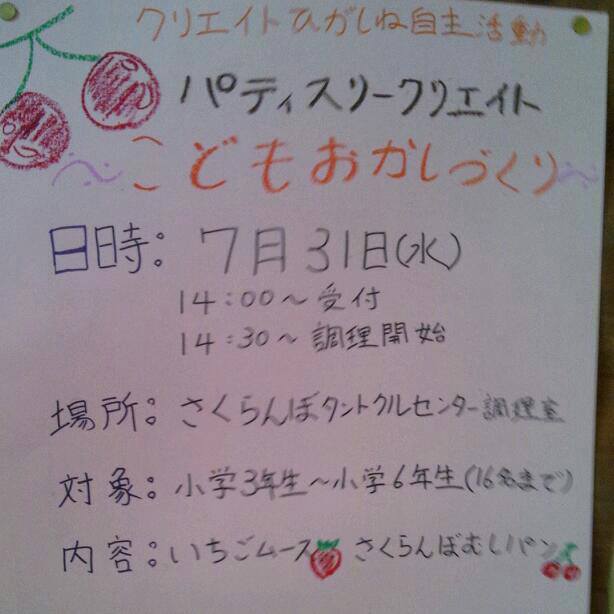 クリエイトひがしね自主活動
パティスリークリエイト
～こどもおかしづくり～
日時：7月31日(水)
14：00～受付
14：30～調理開始
場所：さくらんぼタントクルセンター調理室
対象：小学3年生～小学6年生(16名まで)
内容：いちごムース さくらんぼむしパン